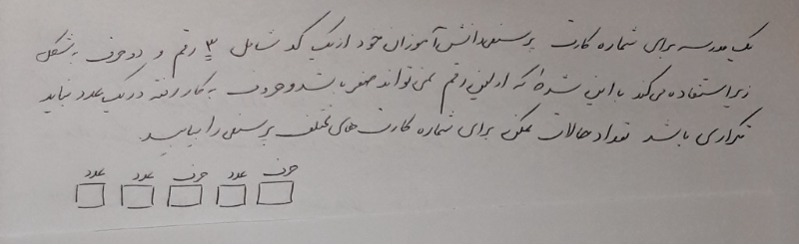 یک مدرسه برای شماره کارت پرسنلی دانش آموزان خود از یک کد شامل ۳ رقم و دو حرف به شکل
زیر استفاده می کند با این شرط که اولین رقم نمی تواند صفر باشد و حروف به کار رفته در یک عدد نباید
تکراری باشد تعداد حالات ممکن برای شماره کارت های مختلف پرسنلی را بیابید
حرف عدد حرف عدد عدد